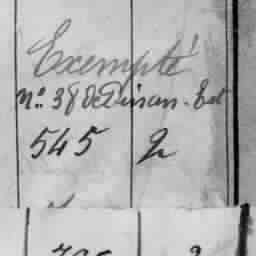 Exempté
No. 38 de Dinan. Est
545 2